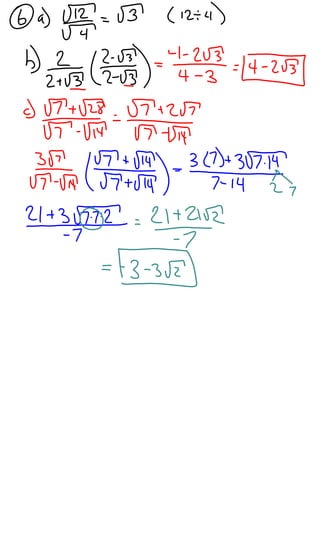 ⑥ a) √12/√4 = √3 (12÷4)
b) 2/(2+√3) ((2-√3)/(2-√3)) = (-1-2√3)/(4-3) = 4-2√3
c) (√7+√28)/(√7-√14) = (√7+2√7)/(√7-√14)
3√7/(√7-√14) ((√7+√14)/(√7+√14)) = (3(7)+3√7·14)/(7-14) 2 7
(21+3√7·7·2)/-7 = (21+21√2)/-7
= -3-3√2